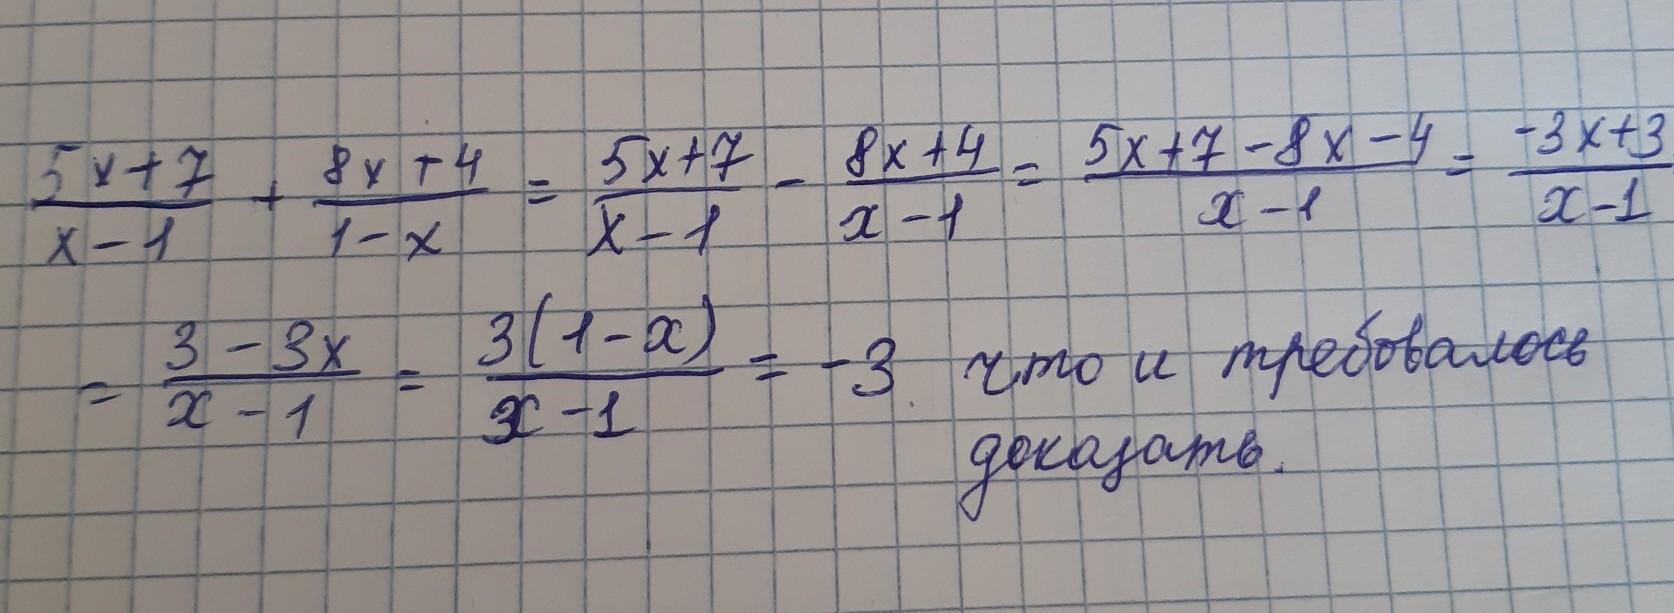 (5x+7)/(x-1) + (8x+4)/(1-x) = (5x+7)/(x-1) - (8x+4)/(x-1) = (5x+7-8x-4)/(x-1) = (-3x+3)/(x-1)
= (3-3x)/(x-1) = (3(1-x))/(x-1) = -3. что и требовалось
доказать.